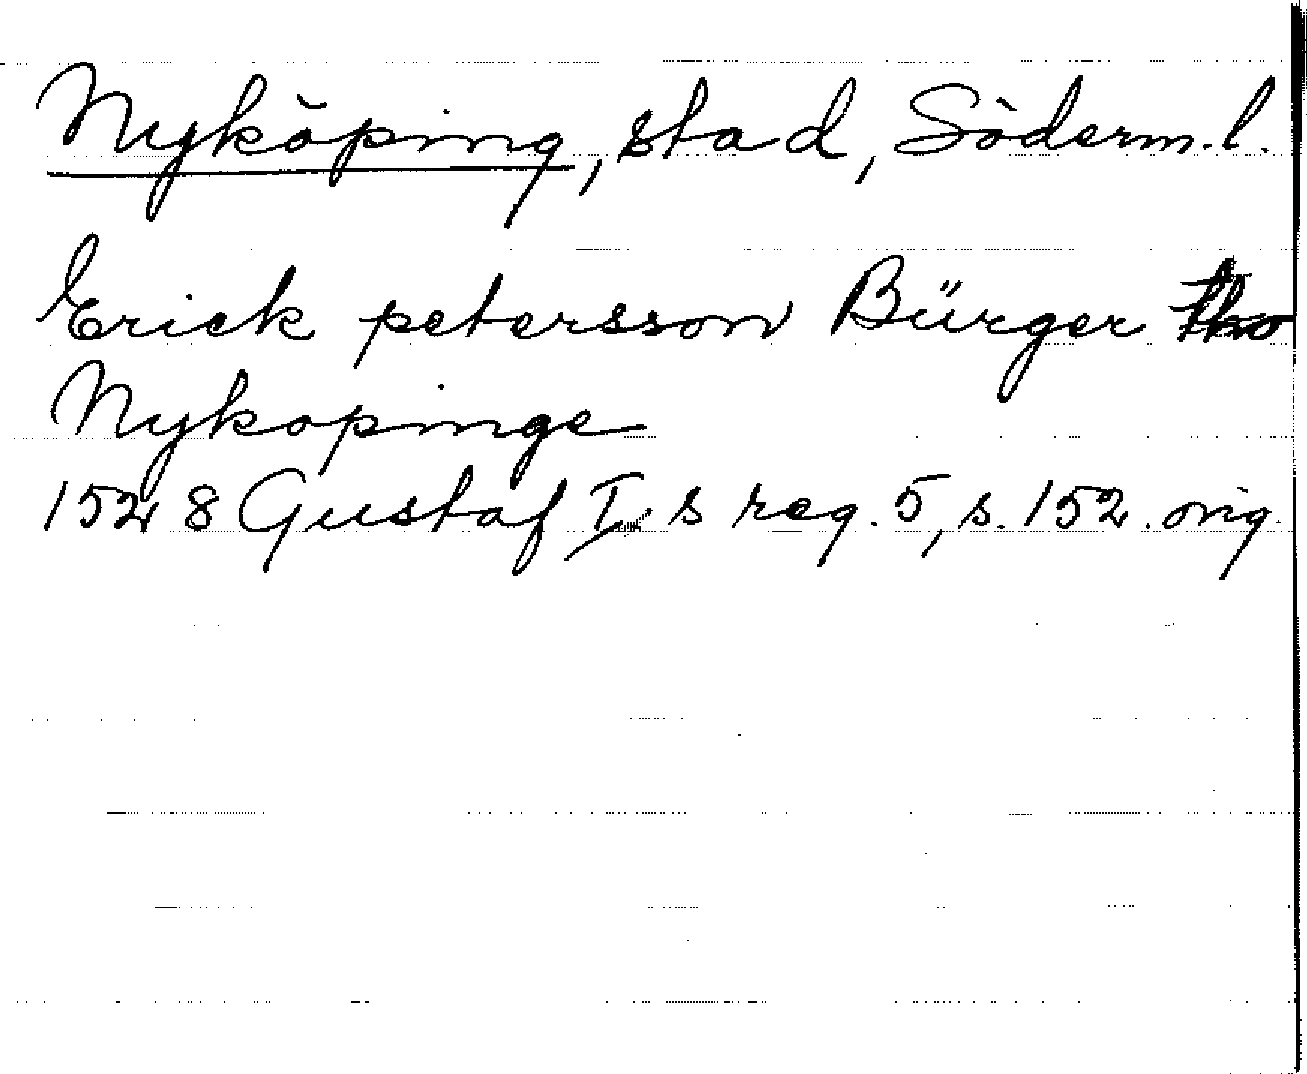 Nyköping, stad, Söderm.l.
Erick petersson Bürger tho
Nykopinge
1528 Gustaf I s reg. 5, s. 152. orig.